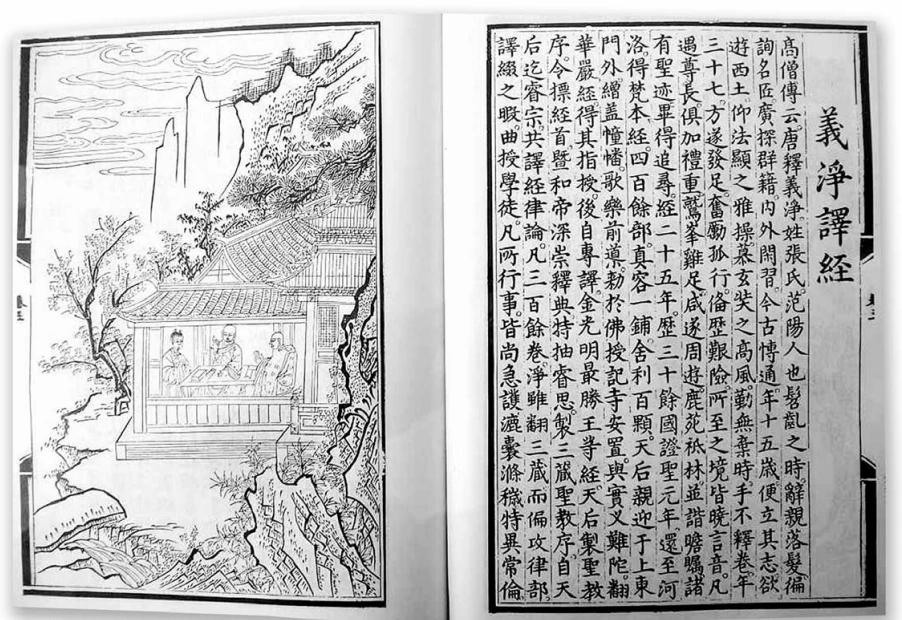 義淨譯經
高僧傳云。唐釋義淨。姓張氏。范陽人也。髫齔之時。辭親落髮。徧
詢名匠。廣探群籍。內外閑習。今古博通。年十五歲。便立其志。欲
遊西土。仰法顯之雅操。慕玄奘之高風。勤無棄時。手不釋卷。年
三十七。方遂發足。奮勵孤行。俻歷艱險。所至之境。皆曉言音。凡
遇尊長。俱加禮重。鷲峯雞足。咸遂周遊。鹿苑秪林。並諧瞻矚。諸
有聖迹。畢得追尋。經二十五年。歷三十餘國。證聖元年。還至河
洛。得梵本經。四百餘部。真容一鋪。舍利百顆。天后親迎于上東
門外。繒盖幢幡。歌樂前導。勅於佛授記寺安置。與實叉難陀。翻
華嚴經。得其指授。後自專譯金光明最勝王等經。天后製聖教
序。令摽經首。暨和帝深崇釋典。特抽睿思。製三藏聖教序。自天
后迄睿宗。共譯經律論。凡三百餘卷。淨雖翻三藏。而偏攻律部。
譯綴之暇。曲授學徒。凡所行事。皆尚急護。漉囊滌穢。特異常倫。